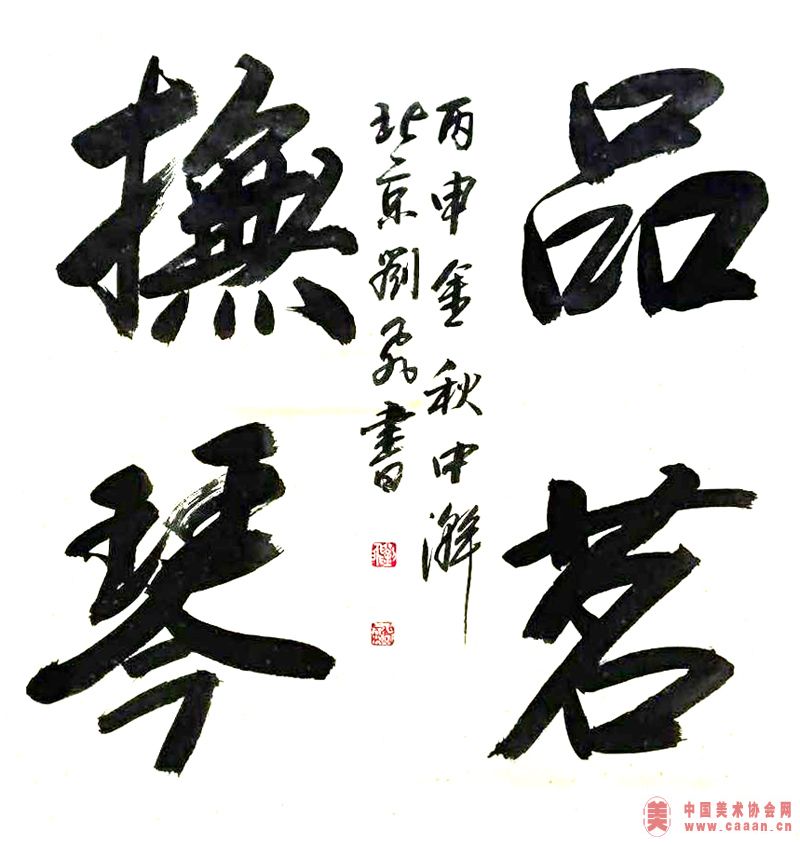 品茗
撫琴
丙申金秋中澣
北京劉飛書
中国美术协会网
www.caaan.cn